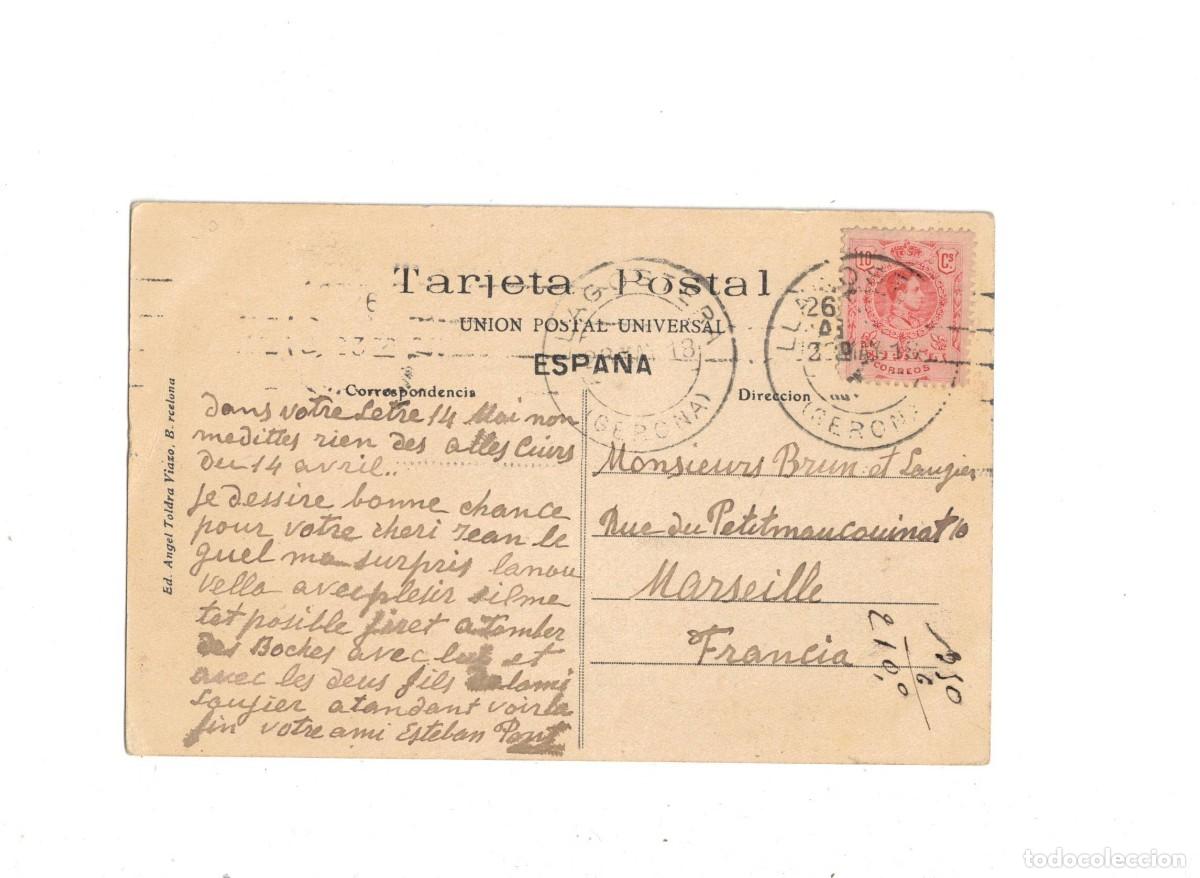 Tarjeta Postal
UNION POSTAL UNIVERSAL
ESPAÑA
Correspondencia
Direccion
Ed. Angel Toldra Viazo. B rcelona
10 Cs
CORREOS
LLAGOSTERA
18
(GERONA)
26
(GERONA)
dans votre Letre 14 Mai non
medittes rien des alles Cuirs
du 14 avril..
je dessire bonne chance
pour votre cheri Jean le
quel ma surpris lanou
vella avec plesir silme
tet possible jiret a tomber
des Boches avec lui et
avec les deus fils lami
Laugier atandant voir la
fin votre ami Esteban Pont
Monsieurs Brun et Laugier
Rue du Petit 10
Marseille
Francia
950
6
2100
todocoleccion